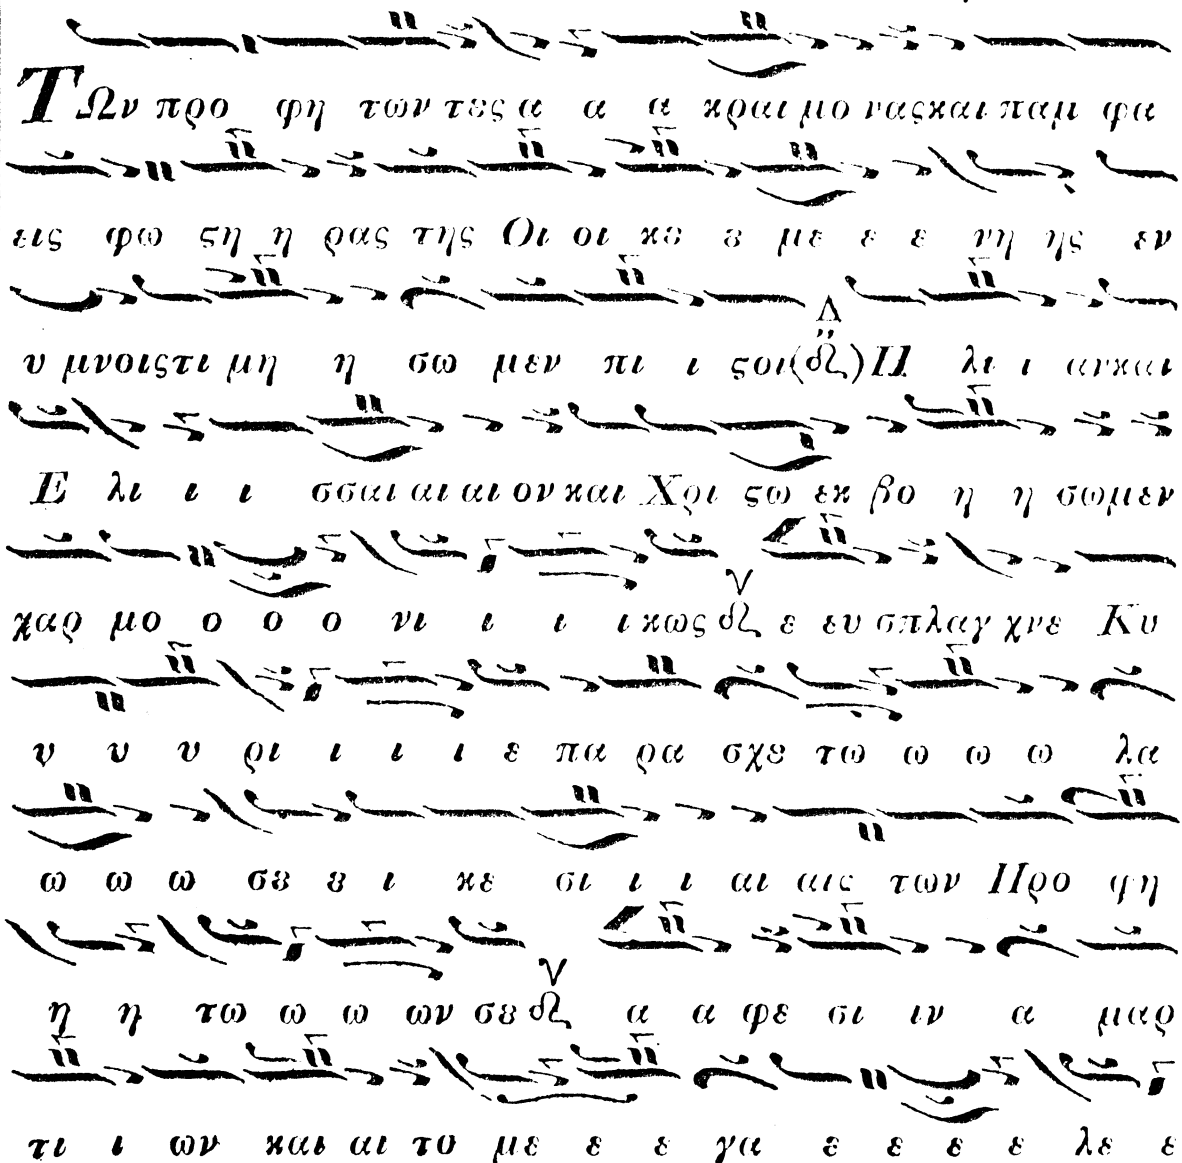 ΤΩν προ φη των τες α α α κραι μο νας και παμ φα
εις φω ςη η ρας της Οι οι κȣ ȣ με ε ε νη ης εν
υ μνοις τι μη η σω μεν πι ι ςοι (δι) Η λι ι αν και
Ε λι ι ι σσαι αι αι ον και Χρι ςω εκ βο η η σω μεν
χαρ μο ο ο ο νι ι ι ι κως δι ε ευ σπλαγ χνε Κυ
υ υ υ ρι ι ι ι ε πα ρα σχȣ τω ω ω ω λα
ω ω ω σȣ ȣ ι κε σι ι ι αι αις των Προ φη
η η τω ω ω ων σȣ δι α α φε σι ιν α μαρ
τι ι ων και αι το με ε ε γα ε ε ε ε λε ε